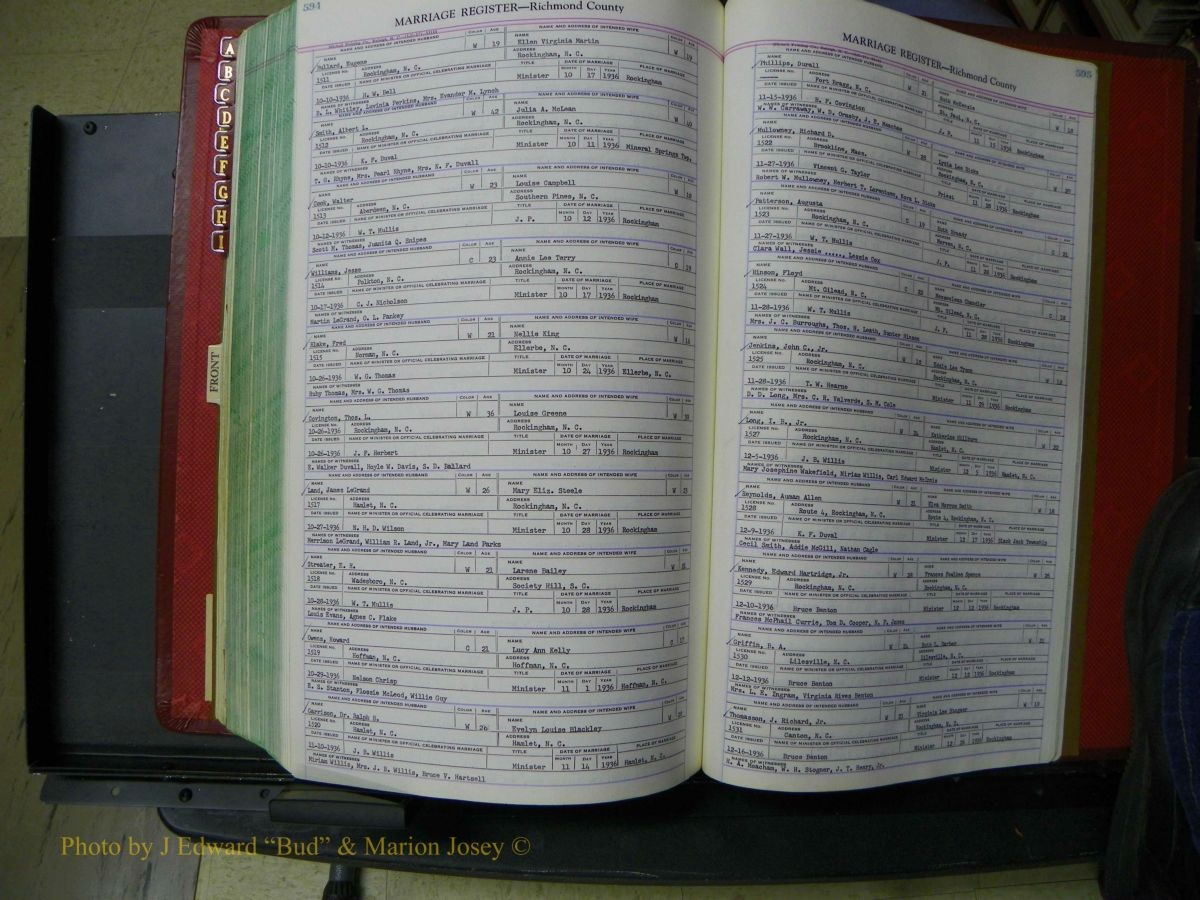 594
MARRIAGE REGISTER—Richmond County
NAME AND ADDRESS OF INTENDED HUSBAND COLOR AGE NAME AND ADDRESS OF INTENDED WIFE COLOR AGE
NAME Bullard, Eugene W 19 Ellen Virginia Martin W 19
LICENSE No. 1511 ADDRESS Rockingham, N. C. ADDRESS Rockingham, N. C.
DATE ISSUED NAME OF MINISTER OR OFFICIAL CELEBRATING MARRIAGE TITLE DATE OF MARRIAGE PLACE OF MARRIAGE
10-10-1936 H. W. Bell Minister 10 17 1936 Rockingham
NAMES OF WITNESSES
D. L. Whitley, Lovinia Perkins, Mrs. Evander M. Lynch
Smith, Albert L. W 42 Julia A. McLean W 40
1512 Rockingham, N. C. Rockingham, N. C.
10-10-1936 K. F. Duval Minister 10 11 1936 Mineral Springs Twp.
T. G. Rhyne, Mrs. Pearl Rhyne, Mrs. K. F. Duvall
Cook, Walter W 23 Louise Campbell W 18
1513 Aberdeen, N. C. Southern Pines, N. C.
10-12-1936 W. T. Mullis J. P. 10 12 1936 Rockingham
Scott M. Thomas, Juanita Q. Snipes
Williams, Jesse C 23 Annie Lee Terry C 19
1514 Polkton, N. C. Rockingham, N. C.
10-17-1936 C. J. Nicholson Minister 10 17 1936 Rockingham
Martin LeGrand, O. L. Pankey
Blake, Fred W 21 Nellie King W 16
1515 Norman, N. C. Ellerbe, N. C.
10-26-1936 W. G. Thomas Minister 10 24 1936 Ellerbe, N. C.
Ruby Thomas, Mrs. W. G. Thomas
Covington, Thos. L. W 36 Louise Greene W
10-26-1936 Rockingham, N. C. Rockingham, N. C.
10-26-1936 J. F. Herbert Minister 10 27 1936 Rockingham
E. Walker Duvall, Hoyle W. Davis, S. D. Ballard
Land, James LeGrand W 26 Mary Eliz. Steele W 23
1517 Hamlet, N. C. Rockingham, N. C.
10-27-1936 N. H. D. Wilson Minister 10 28 1936 Rockingham
Harrison LeGrand, William R. Land, Jr., Mary Land Parks
Streater, H. H. W 21 Larene Bailey W
1518 Wadesboro, N. C. Society Hill, S. C.
10-28-1936 W. T. Mullis J. P. 10 28 1936 Rockingham
Louis Evans, Agnes C. Flake
Owens, Howard C 21 Lucy Ann Kelly C 17
1519 Hoffman, N. C. Hoffman, N. C.
10-29-1936 Nelson Chrisp Minister 11 1 1936 Hoffman, N. C.
E. S. Stanton, Flossie McLeod, Willie Guy
Garrison, Dr. Ralph B. W 26 Evelyn Louise Blackley W
1520 Hamlet, N. C. Hamlet, N. C.
11-10-1936 J. B. Willis Minister 11 14 1936 Hamlet, N. C.
Miriam Willis, Mrs. J. B. Willis, Bruce V. Hartsell
595
MARRIAGE REGISTER—Richmond County
Phillips, Durall W 21 W 18
Fort Bragg, N. C. St. Paul, N. C.
11-15-1936 H. F. Covington J. P. 11 15 1936 Rockingham
W. W. Carraway, W. D. Ormsby, J. E. Meacham
Mullowney, Richard D. W Lee Hicks W
1522 Brookline, Mass. Rockingham, N. C.
11-27-1936 Vincent G. Taylor Priest 11 28 1936 Rockingham
Robert W. Mullowney, Herbert T. Lorentzen, Hicks
Patterson, Augusta C 19 Ruth C 21
1523 Rockingham, N. C. N. C.
11-27-1936 W. T. Mullis J. P. 11 28 1936 Rockingham
Clara Wall, Jessie ....., Lessie Cox
Hinson, Floyd C Chandler C
1524 Mt. Gilead, N. C. Mt. Gilead, N. C.
11-28-1936 W. T. Mullis J. P. 11 28 1936 Rockingham
Mrs. J. C. Burroughs, Thos. H. Leath, Hinson
Jenkins, John C., Jr. W Eddie Lee Tyson W
1525 Rockingham, N. C. Rockingham, N. C.
11-28-1936 T. W. Hearne Minister 11 28 1936 Rockingham
D. D. Long, Mrs. C. H. Valverde, Cole
Long, T. B., Jr. W 24 Katherine W 22
1527 Rockingham, N. C. Hamlet, N. C.
12-5-1936 J. B. Willis Minister 12 5 1936 Hamlet, N. C.
Mary Josephine Wakefield, Miriam Willis, Carl Edward McInnis
Reynolds, Auman Allen W 21 Elva Marcus Smith W 18
1528 Route 4, Rockingham, N. C. Route 4, Rockingham, N. C.
12-9-1936 K. F. Duval Minister 12 17 1936 Black Jack Township
Cecil Smith, Addie McGill, Nathan Cagle
Kennedy, Edward Hartridge, Jr. W 28 Frances Pealee Spence W 26
1529 Rockingham, N. C. Rockingham, N. C.
12-10-1936 Bruce Benton Minister 12 12 1936 Rockingham
Frances McPhail Currie, Tom D. Cooper, K. P. Jones
Griffin, B. A. W 24 Barber W 21
1530 Lilesville, N. C. Lilesville, N. C.
12-12-1936 Bruce Benton Minister 12 12 1936 Rockingham
Mrs. L. H. Ingram, Virginia Hives Benton
Thomasson, J. Richard, Jr. W 21 Virginia Lee Stogner W 19
1531 Canton, N. C. Rockingham, N. C.
12-16-1936 Bruce Benton Minister 12 1936 Rockingham
H. A. Meacham, W. H. Stogner, J. T. Heary, Jr.
A
B
C
D
E
F
G
H
I
FRONT
Photo by J Edward “Bud” & Marion Josey ©